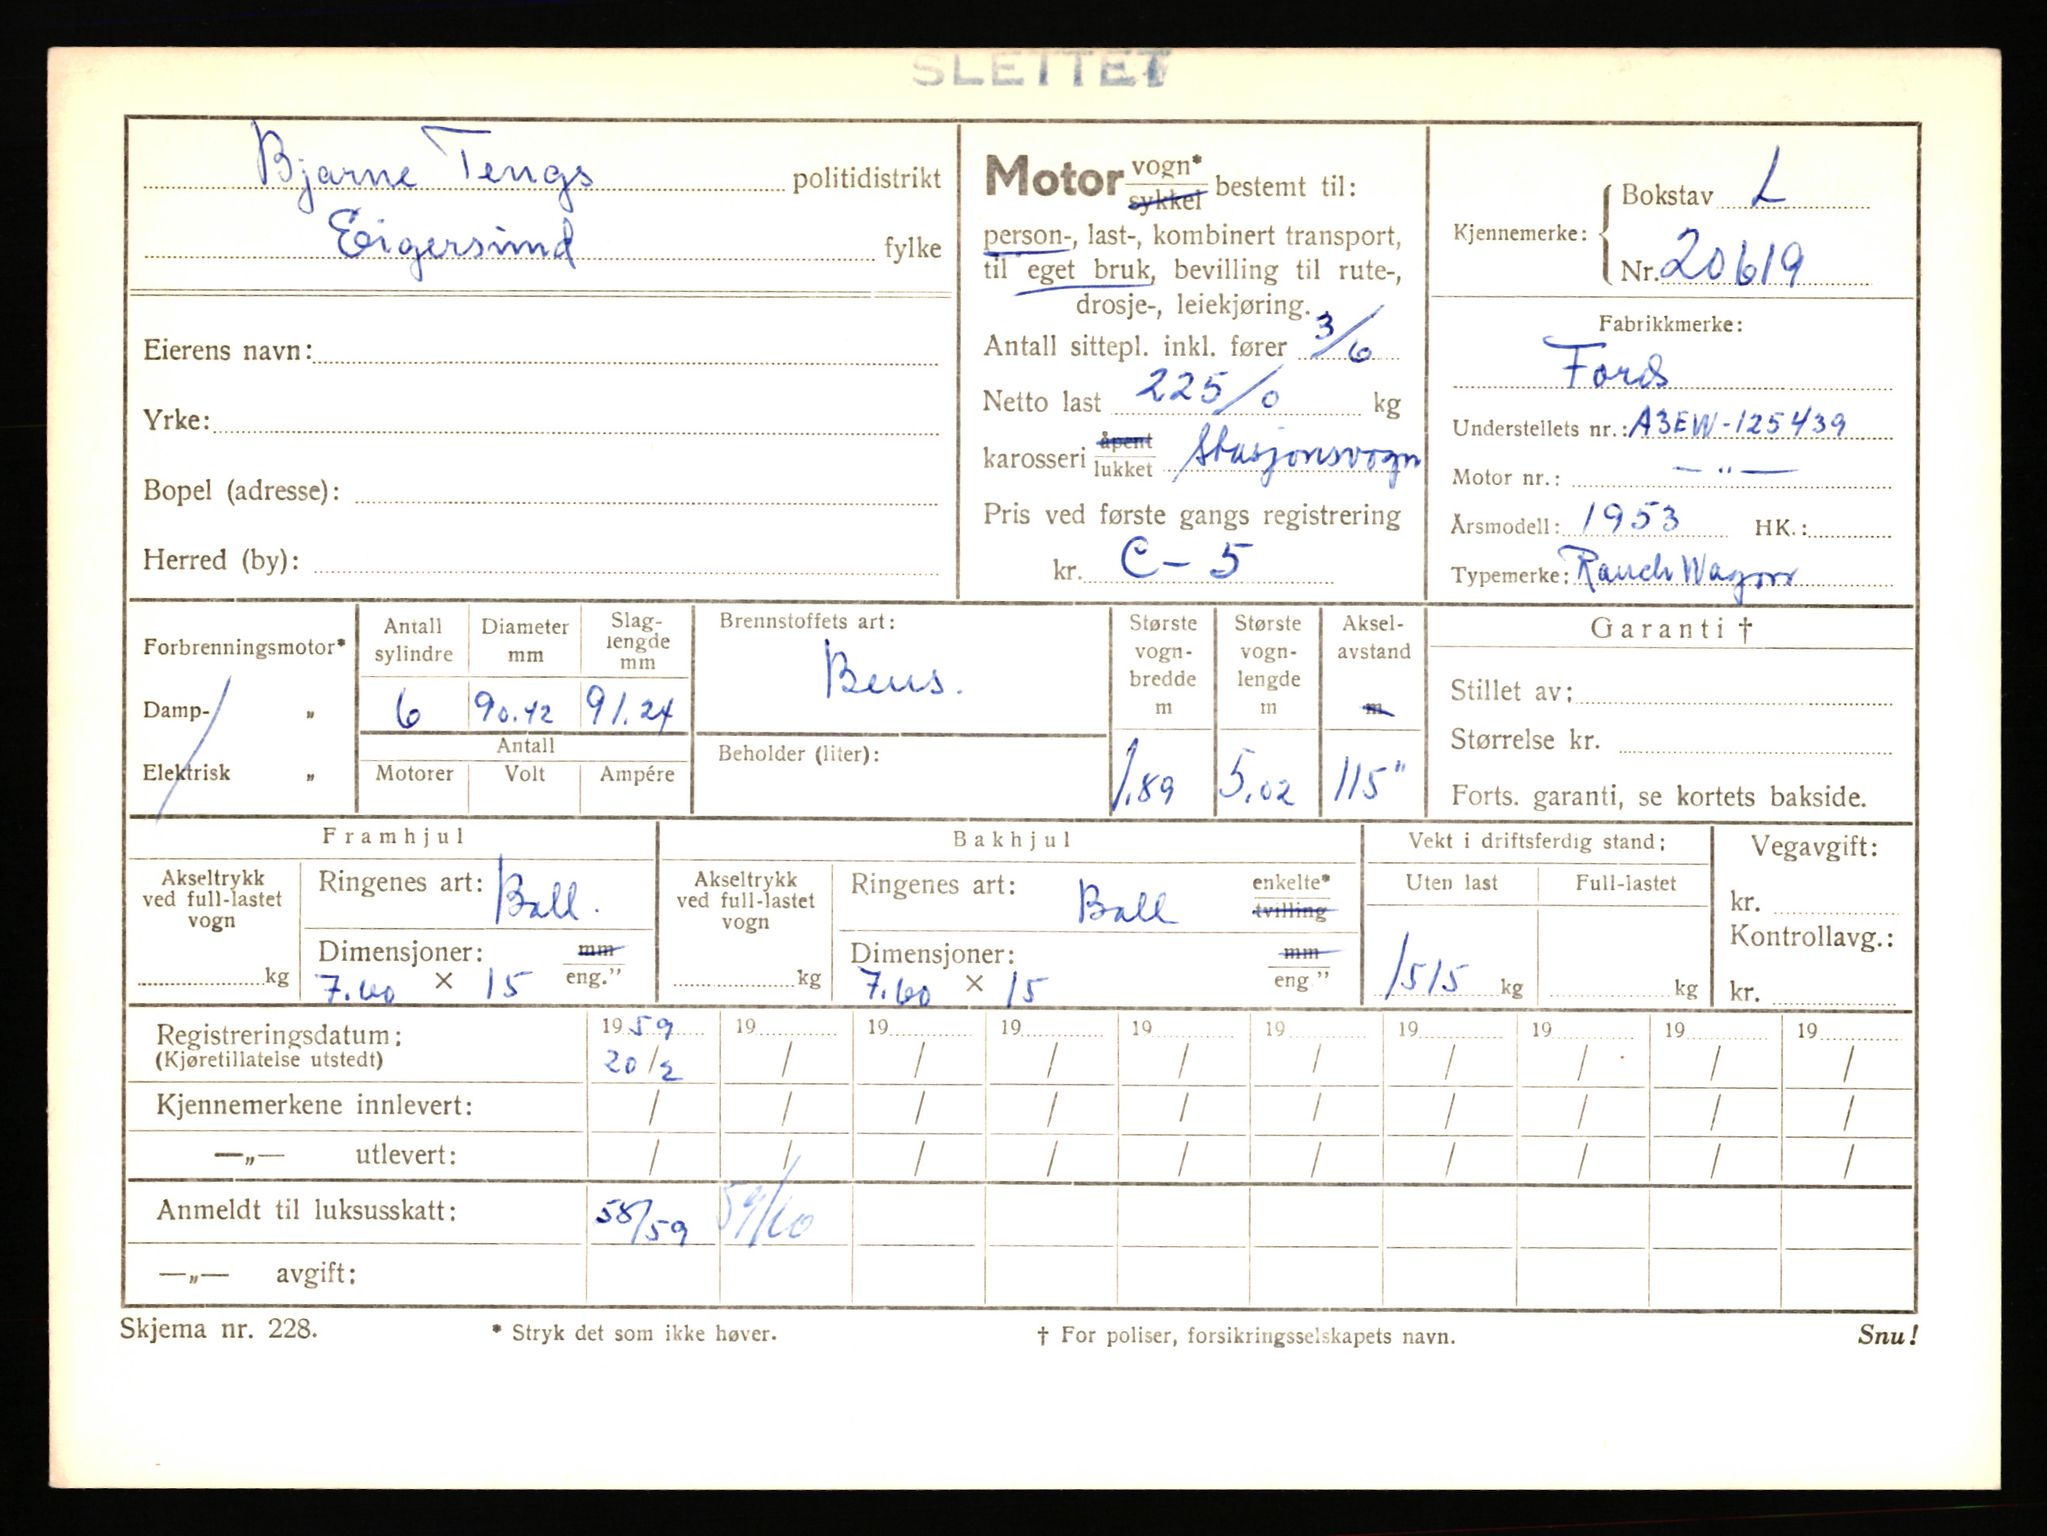 SLETTET
Bjarne Tengs politidistrikt
Eigersund fylke
Eierens navn:
Yrke:
Bopel (adresse):
Herred (by):
Motor vogn* / sykkel bestemt til:
person-, last-, kombinert transport,
til eget bruk, bevilling til rute-,
drosje-, leiekjøring.
Antall sittepl. inkl. fører 3/6
Netto last 225/0 kg
karosseri åpent / lukket Stasjonsvogn
Pris ved første gangs registrering
kr. C-5
Kjennemerke: Bokstav L
Nr. 20619
Fabrikkmerke:
Ford
Understellets nr.: A3EW-125439
Motor nr.: — " —
Årsmodell: 1953 HK.:
Typemerke: Ranch Wagon
Forbrenningsmotor*
Damp- "
Elektrisk "
Antall sylindre
6
Diameter mm
90.42
Slag-lengde mm
91.24
Antall
Motorer Volt Ampére
Brennstoffets art:
Bens.
Beholder (liter):
Største vogn-bredde m
1.89
Største vogn-lengde m
5.02
Aksel-avstand m
115"
Garanti †
Stillet av:
Størrelse kr.
Forts. garanti, se kortets bakside.
Framhjul
Akseltrykk ved full-lastet vogn
kg
Ringenes art: Ball.
Dimensjoner: mm
7.60 × 15 eng."
Bakhjul
Akseltrykk ved full-lastet vogn
kg
Ringenes art: Ball enkelte* / tvilling
Dimensjoner: mm
7.60 × 15 eng"
Vekt i driftsferdig stand:
Uten last Full-lastet
1515 kg kg
Vegavgift:
kr.
Kontrollavg.:
kr.
Registreringsdatum: 1959 19 19 19 19 19 19 19 19 19
(Kjøretillatelse utstedt) 20/2 / / / / / / / / /
Kjennemerkene innlevert: / / / / / / / / / /
—„— utlevert: / / / / / / / / / /
Anmeldt til luksusskatt: 58/59 59/60
—„— avgift:
Skjema nr. 228. * Stryk det som ikke høver. † For poliser, forsikringsselskapets navn. Snu!